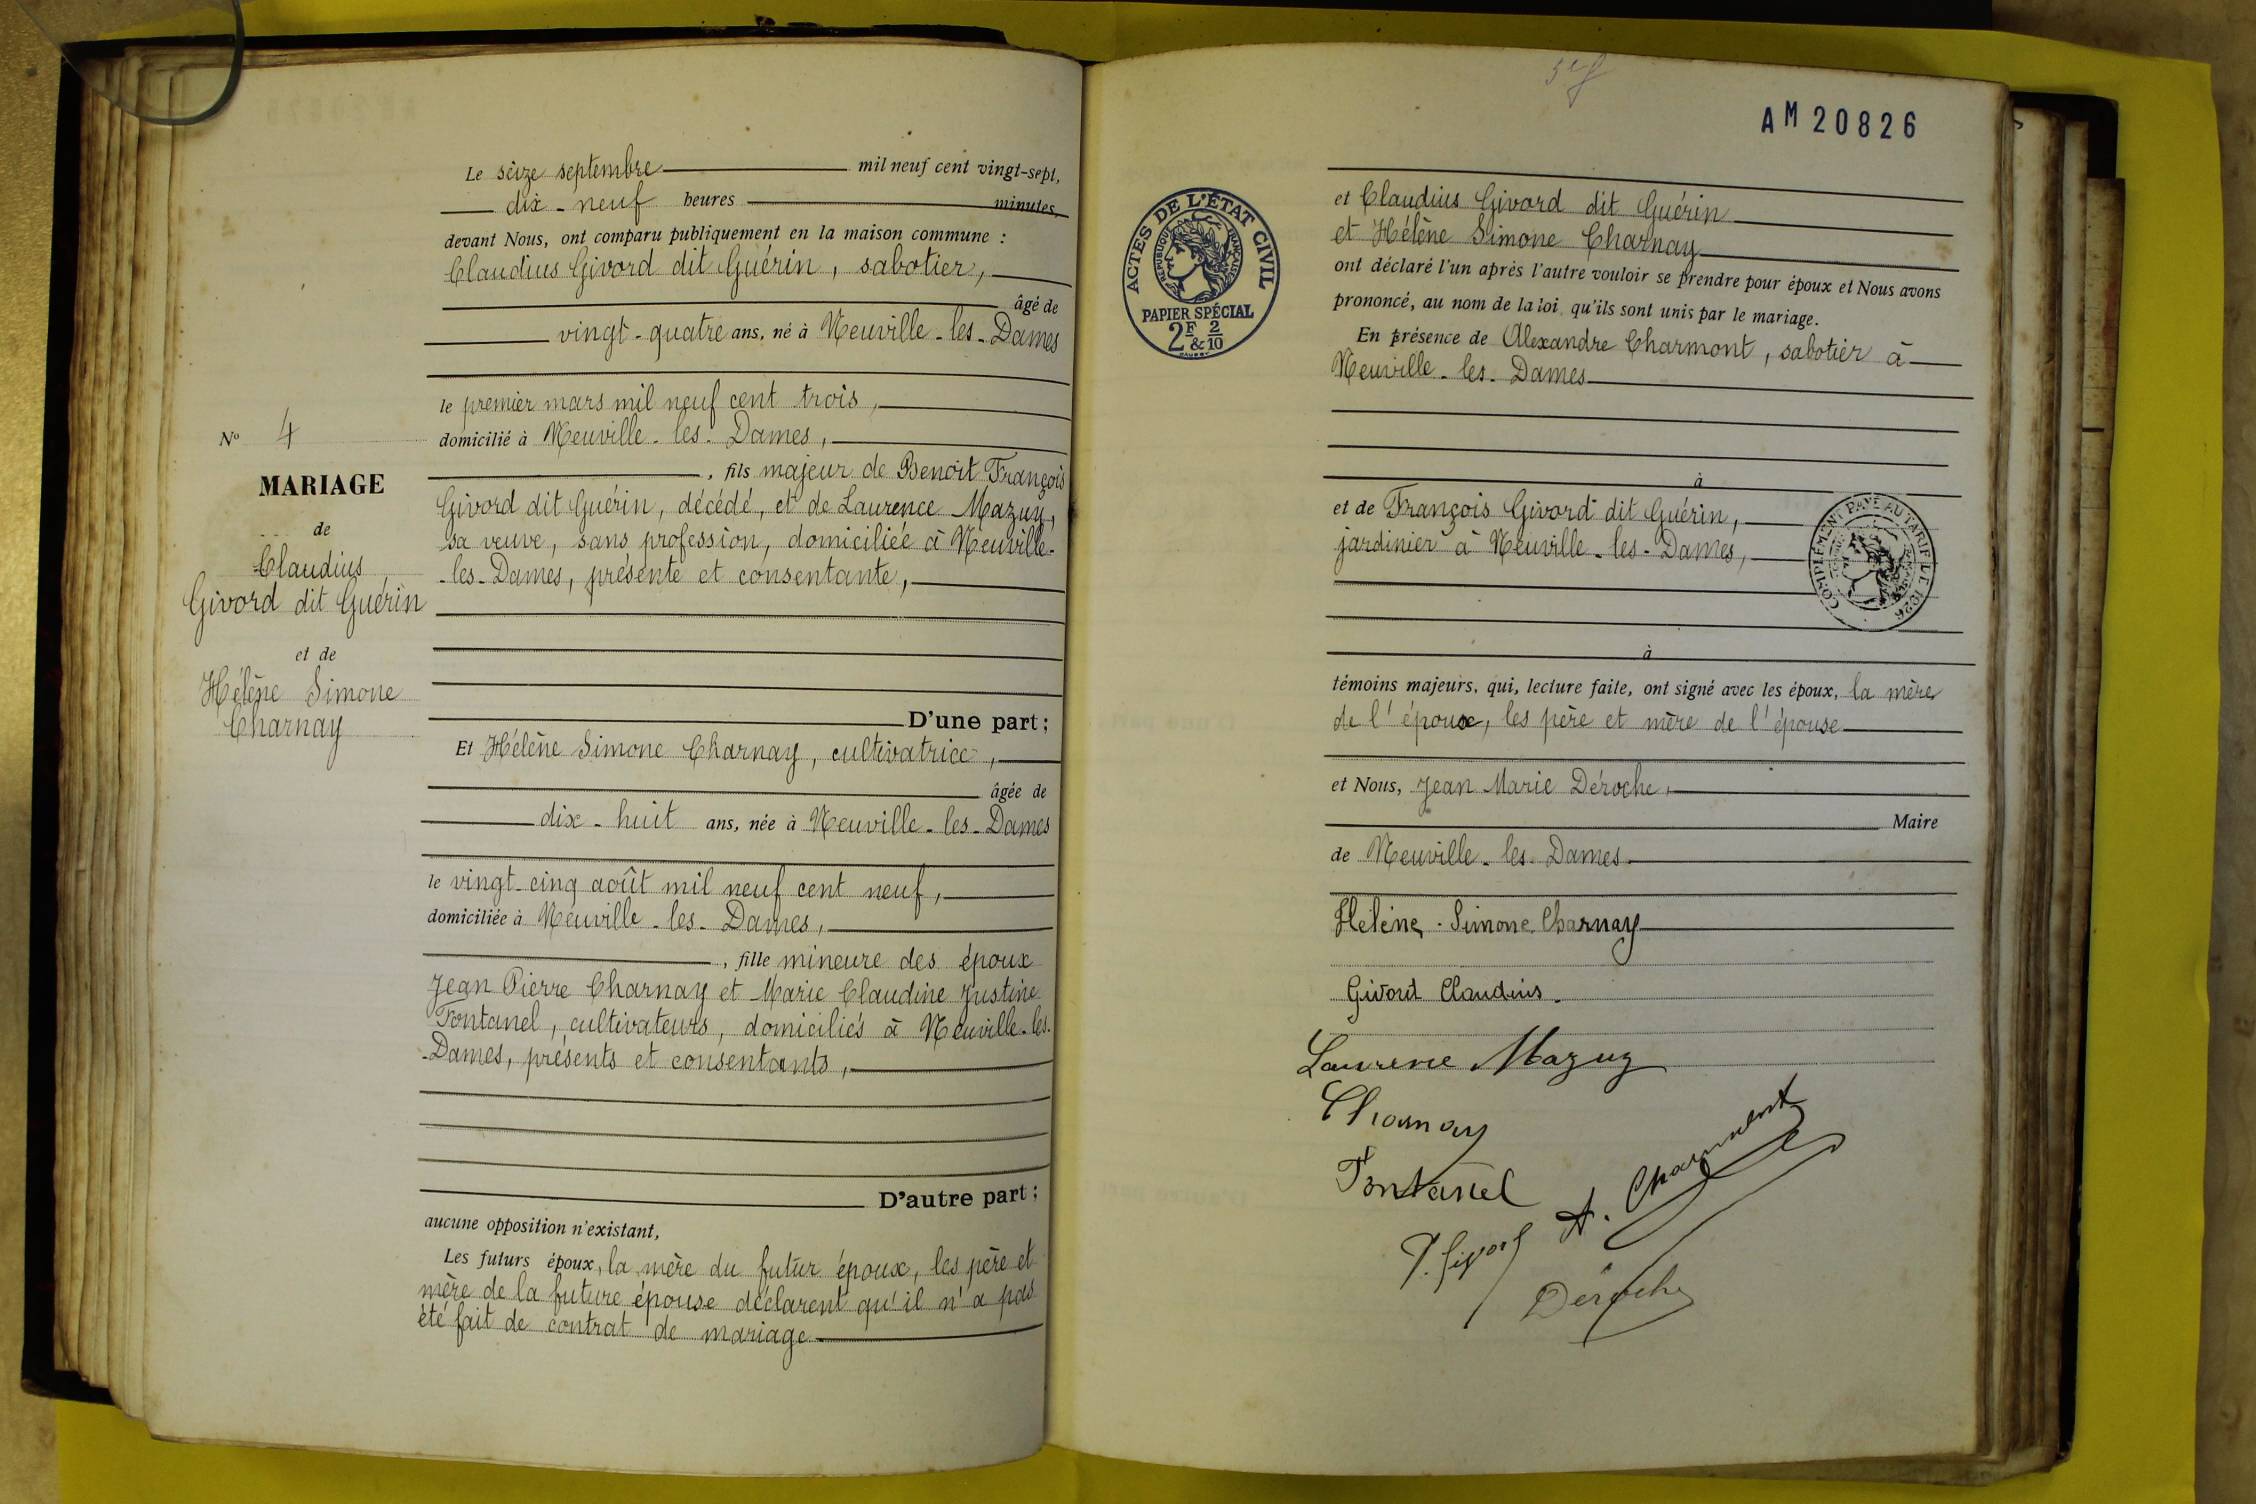 Le seize septembre mil neuf cent vingt-sept,
dix-neuf heures minutes,
devant Nous, ont comparu publiquement en la maison commune :
Claudius Givord dit Guérin, sabotier,
âgé de
vingt-quatre ans, né à Neuville-les-Dames
le premier mars mil neuf cent trois,
domicilié à Neuville-les-Dames,
, fils majeur de Benoit François
Givord dit Guérin, décédé, et de Laurence Mazuy,
sa veuve, sans profession, domiciliée à Neuville-
-les-Dames, présente et consentante,
D'une part ;
Et Hélène Simone Charnay, cultivatrice,
âgée de
dix-huit ans, née à Neuville-les-Dames
le vingt-cinq août mil neuf cent neuf,
domiciliée à Neuville-les-Dames,
, fille mineure des époux
Jean Pierre Charnay et Marie Claudine Justine
Fontanel, cultivateurs, domiciliés à Neuville-les-
-Dames, présents et consentants,
D'autre part ;
aucune opposition n'existant,
Les futurs époux, la mère du futur époux, les père et
mère de la future épouse déclarent qu'il n'a pas
été fait de contrat de mariage
No 4
MARIAGE
de
Claudius
Givord dit Guérin
et de
Hélène Simone
Charnay
AM 20826
ACTES DE L'ÉTAT CIVIL
RÉPUBLIQUE FRANÇAISE
PAPIER SPÉCIAL
2F & 2/10
et Claudius Givord dit Guérin
et Hélène Simone Charnay
ont déclaré l'un après l'autre vouloir se prendre pour époux et Nous avons
prononcé, au nom de la loi, qu'ils sont unis par le mariage.
En présence de Alexandre Charmont, sabotier à
Neuville-les-Dames
à
et de François Givord dit Guérin,
jardinier à Neuville-les-Dames,
COMPLÉMENT PAYÉ AU TARIF DE 1926
à
témoins majeurs, qui, lecture faite, ont signé avec les époux, la mère
de l'époux, les père et mère de l'épouse
et Nous, Jean Marie Déroche,
Maire
de Neuville-les-Dames
Hélène Simone Charnay
Givord Claudius.
Laurence Mazuy
Charnay
Fontanel
A. Charmont
F. Givord
Déroche